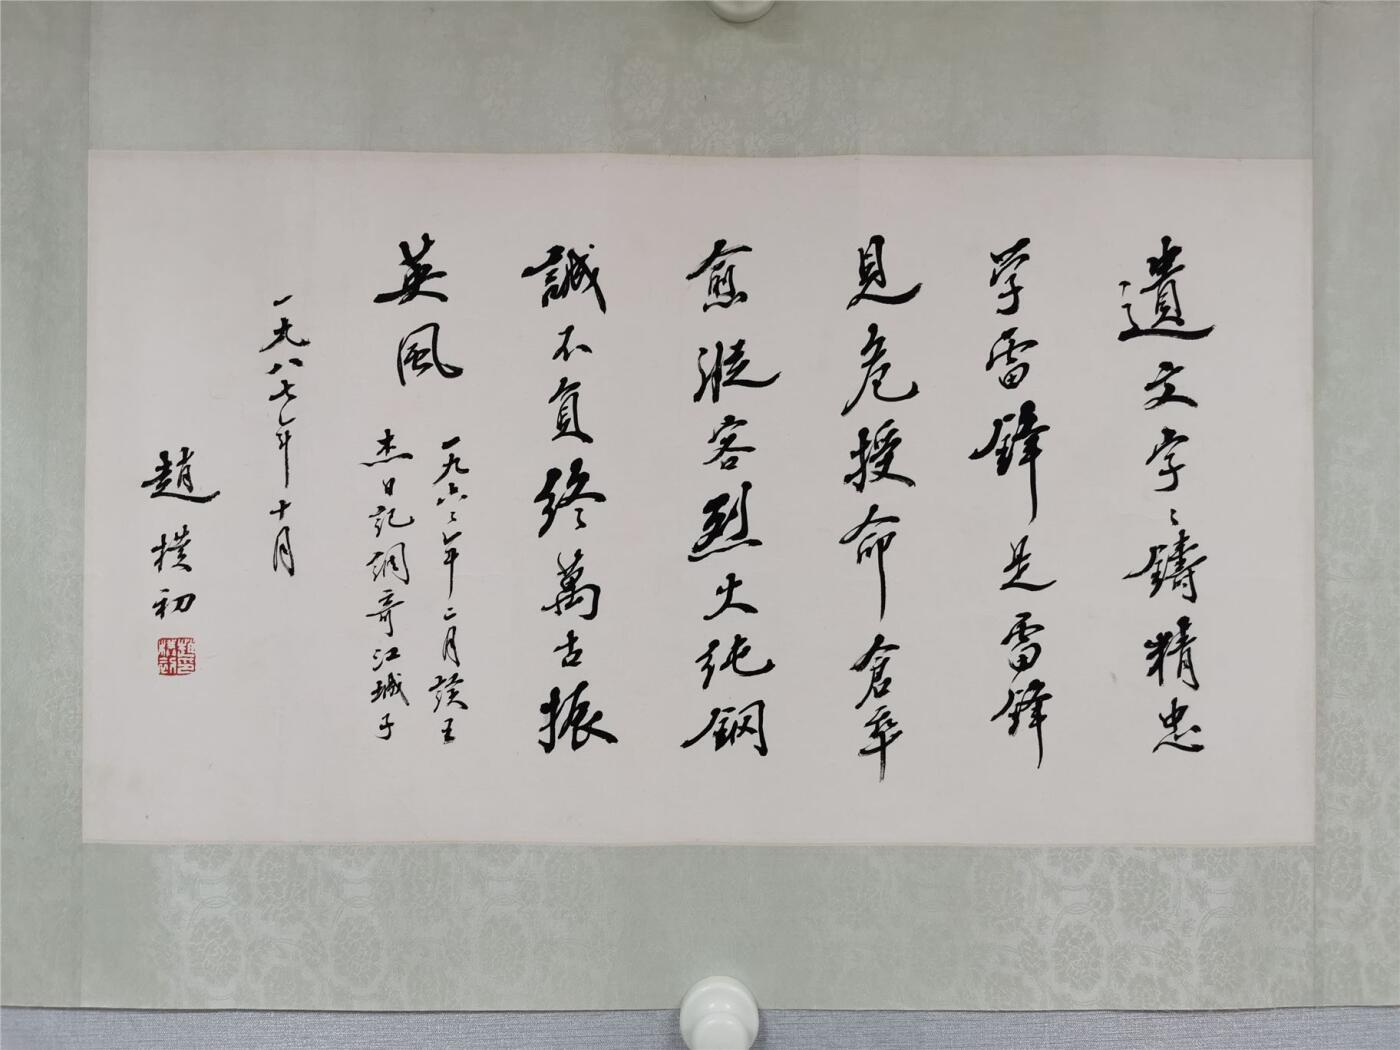 遺文字〻鑄精忠
学雷鋒是雷鋒
見危授命倉卒
愈從容烈火純鋼
誠不負終萬古振
英風
一九六六年二月读王
杰日記調寄江城子
一九八七年十月
趙樸初